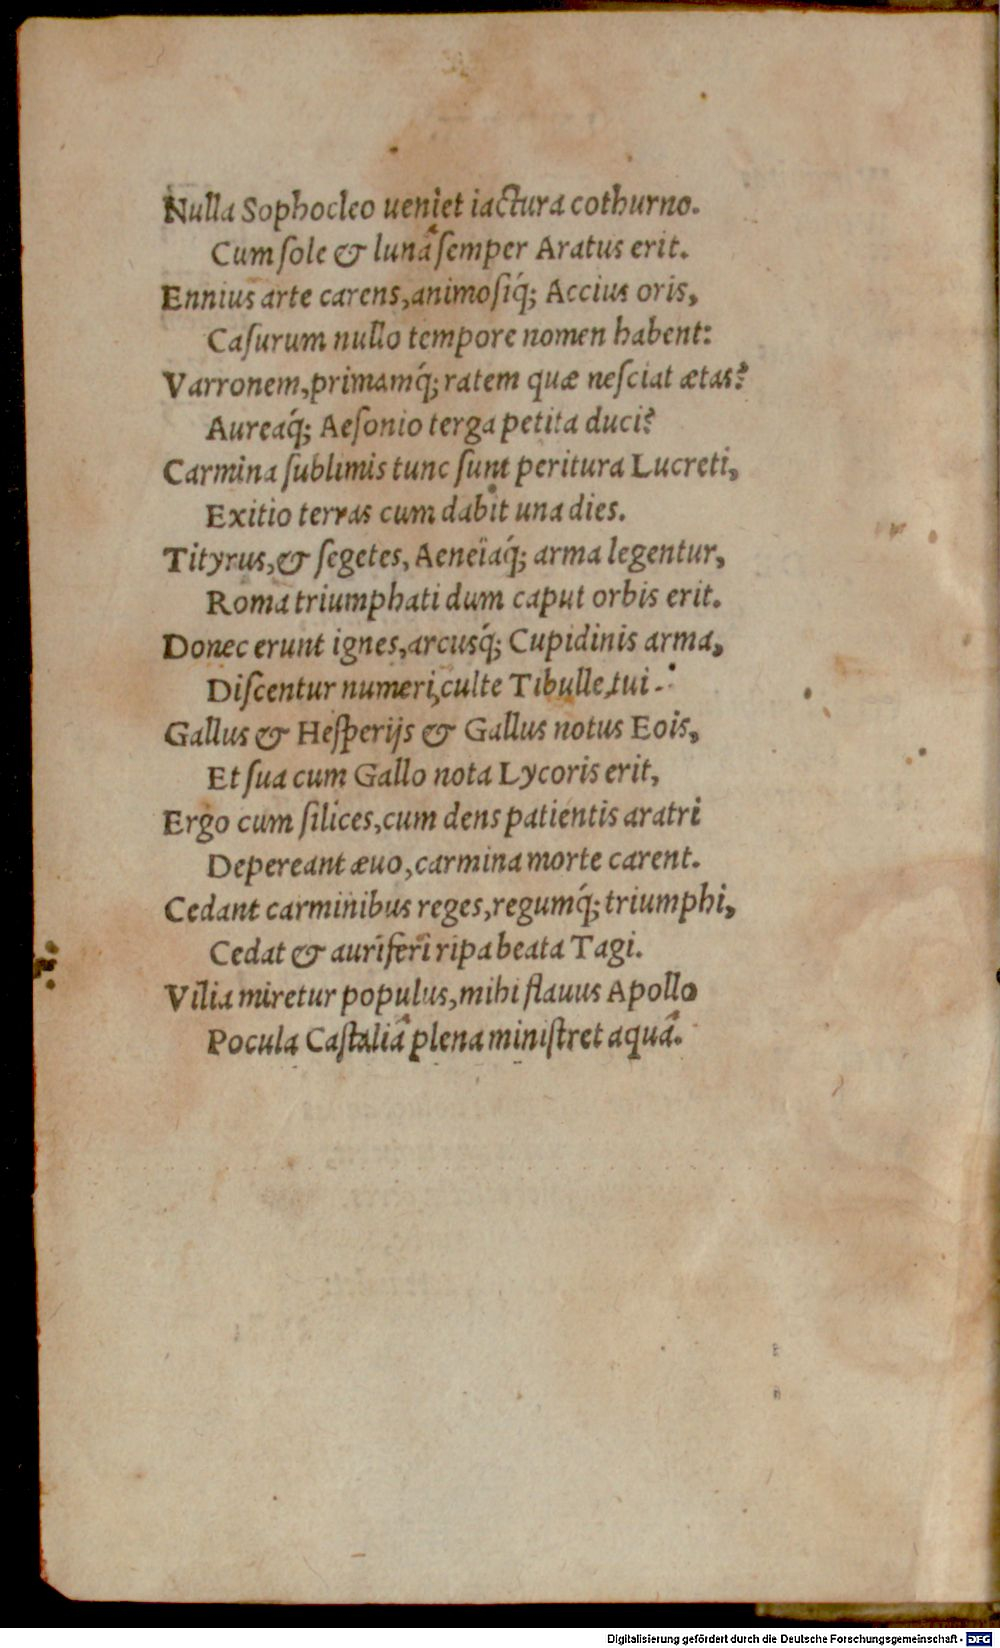 Nulla Sophocleo ueniet iactura cothurno.
Cum ſole & lunâ ſemper Aratus erit.
Ennius arte carens, animoſiq́; Accius oris,
Caſurum nullo tempore nomen habent:
Varronem, primamq́; ratem quæ neſciat ætas?
Aureaq́; Aeſonio terga petita duci?
Carmina ſublimis tunc ſunt peritura Lucreti,
Exitio terras cum dabit una dies.
Tityrus, & ſegetes, Aeneïaq́; arma legentur,
Roma triumphati dum caput orbis erit.
Donec erunt ignes, arcusq́; Cupidinis arma,
Diſcentur numeri, culte Tibulle, tui.
Gallus & Heſperijs & Gallus notus Eois,
Et ſua cum Gallo nota Lycoris erit,
Ergo cum ſilices, cum dens patientis aratri
Depereant æuo, carmina morte carent.
Cedant carminibus reges, regumq́; triumphi,
Cedat & auriferi ripa beata Tagi.
Vilia miretur populus, mihi flauus Apollo
Pocula Caſtaliâ plena miniſtret aquâ.
Digitalisierung gefördert durch die Deutsche Forschungsgemeinschaft - DFG